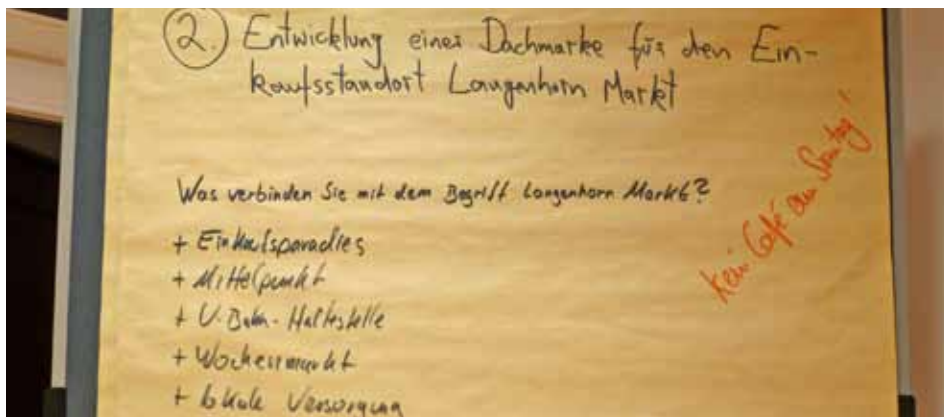 2. Entwicklung einer Dachmarke für den Ein-
kaufsstandort Langenhorn Markt
Was verbinden Sie mit dem Begriff Langenhorn Markt?
+ Einkaufsparadies
+ Mittelpunkt
+ U-Bahn-Haltestelle
+ Wochenmarkt
+ lokale Versorgung
Kein Café am Sonntag!